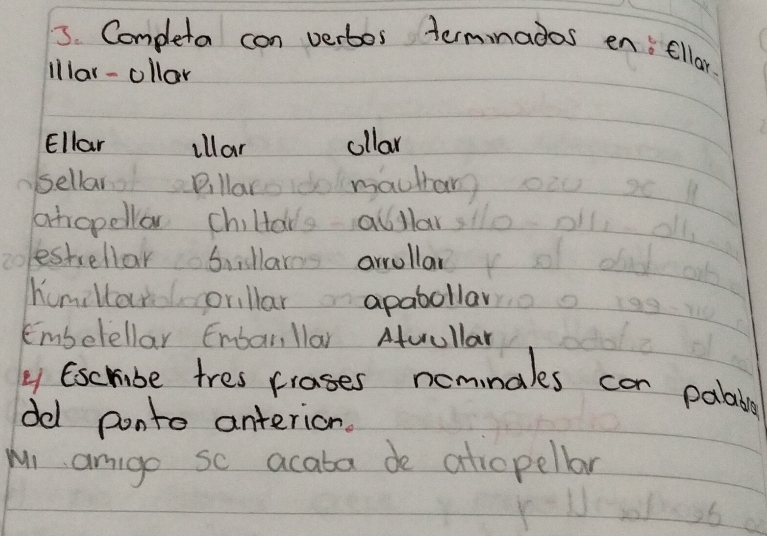 3. Completa con verbos terminados en: Ellar-
illar - ullar
Ellar illar ullar
sellar Pillar maullar
atropellar Chillar aullar
estrellar brillar arrullar
humillar orillar apabollar
Embotellar Embarillar Aturullar
4) Escribe tres frases nominales con palabra
del ponto anterior.
Mi amigo se acaba de atropellar